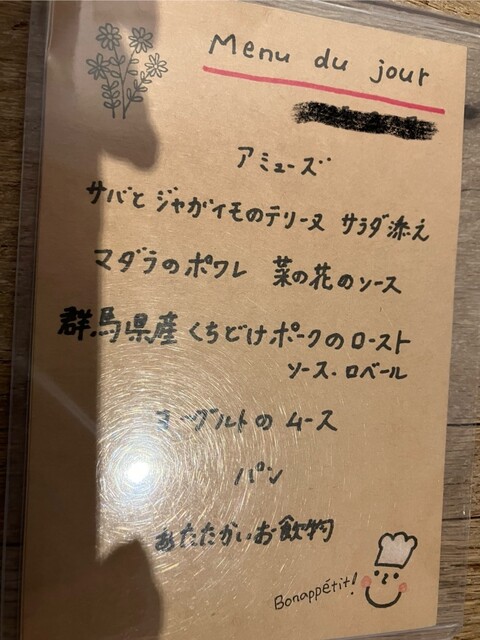 Menu du jour
アミューズ
サバとジャガイモのテリーヌ サラダ添え
マダラのポワレ 菜の花のソース
群馬県産くちどけポークのロースト
ソース・ロベール
ヨーグルトのムース
パン
あたたかいお飲物
Bonappétit!